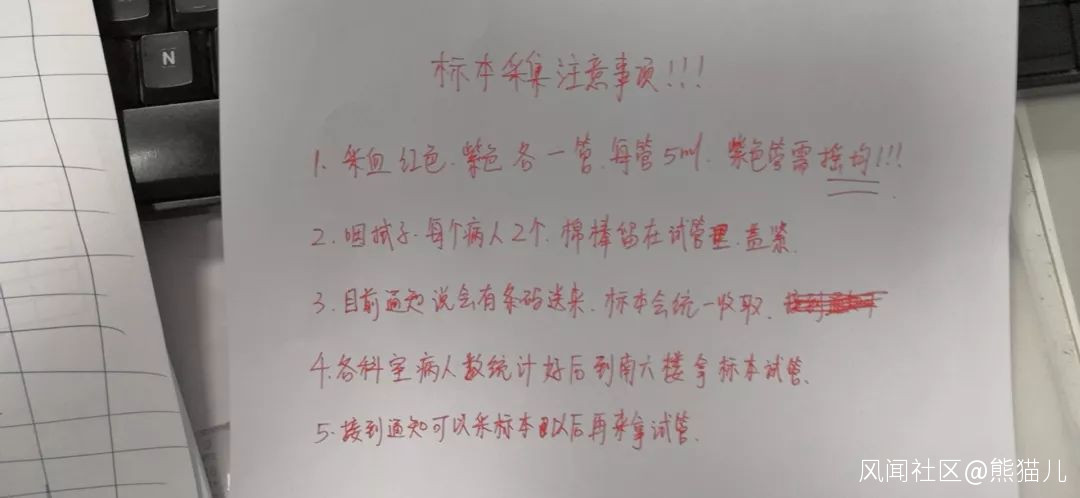 N
标本采集注意事项!!!
1. 采血红色、紫色各一管、每管5ml、紫色管需摇均!!!
2. 咽拭子、每个病人2个、棉棒留在试管里、盖紧.
3. 目前通知说会有条码送来、标本会统一收取、
4. 各科室病人数统计好后到南六楼拿标本试管、
5. 接到通知可以采标本以后再来拿试管、
风闻社区@熊猫儿